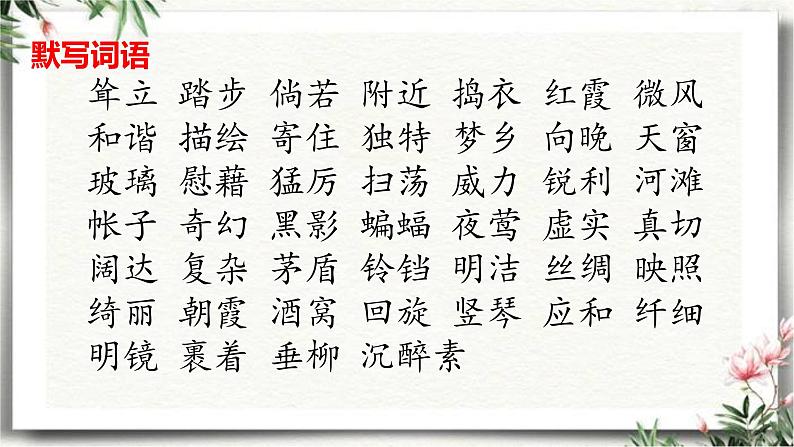 默写词语
耸立 踏步 倘若 附近 捣衣 红霞 微风
和谐 描绘 寄住 独特 梦乡 向晚 天窗
玻璃 慰藉 猛厉 扫荡 威力 锐利 河滩
帐子 奇幻 黑影 蝙蝠 夜莺 虚实 真切
阔达 复杂 茅盾 铃铛 明洁 丝绸 映照
绮丽 朝霞 酒窝 回旋 竖琴 应和 纤细
明镜 裹着 垂柳 沉醉素